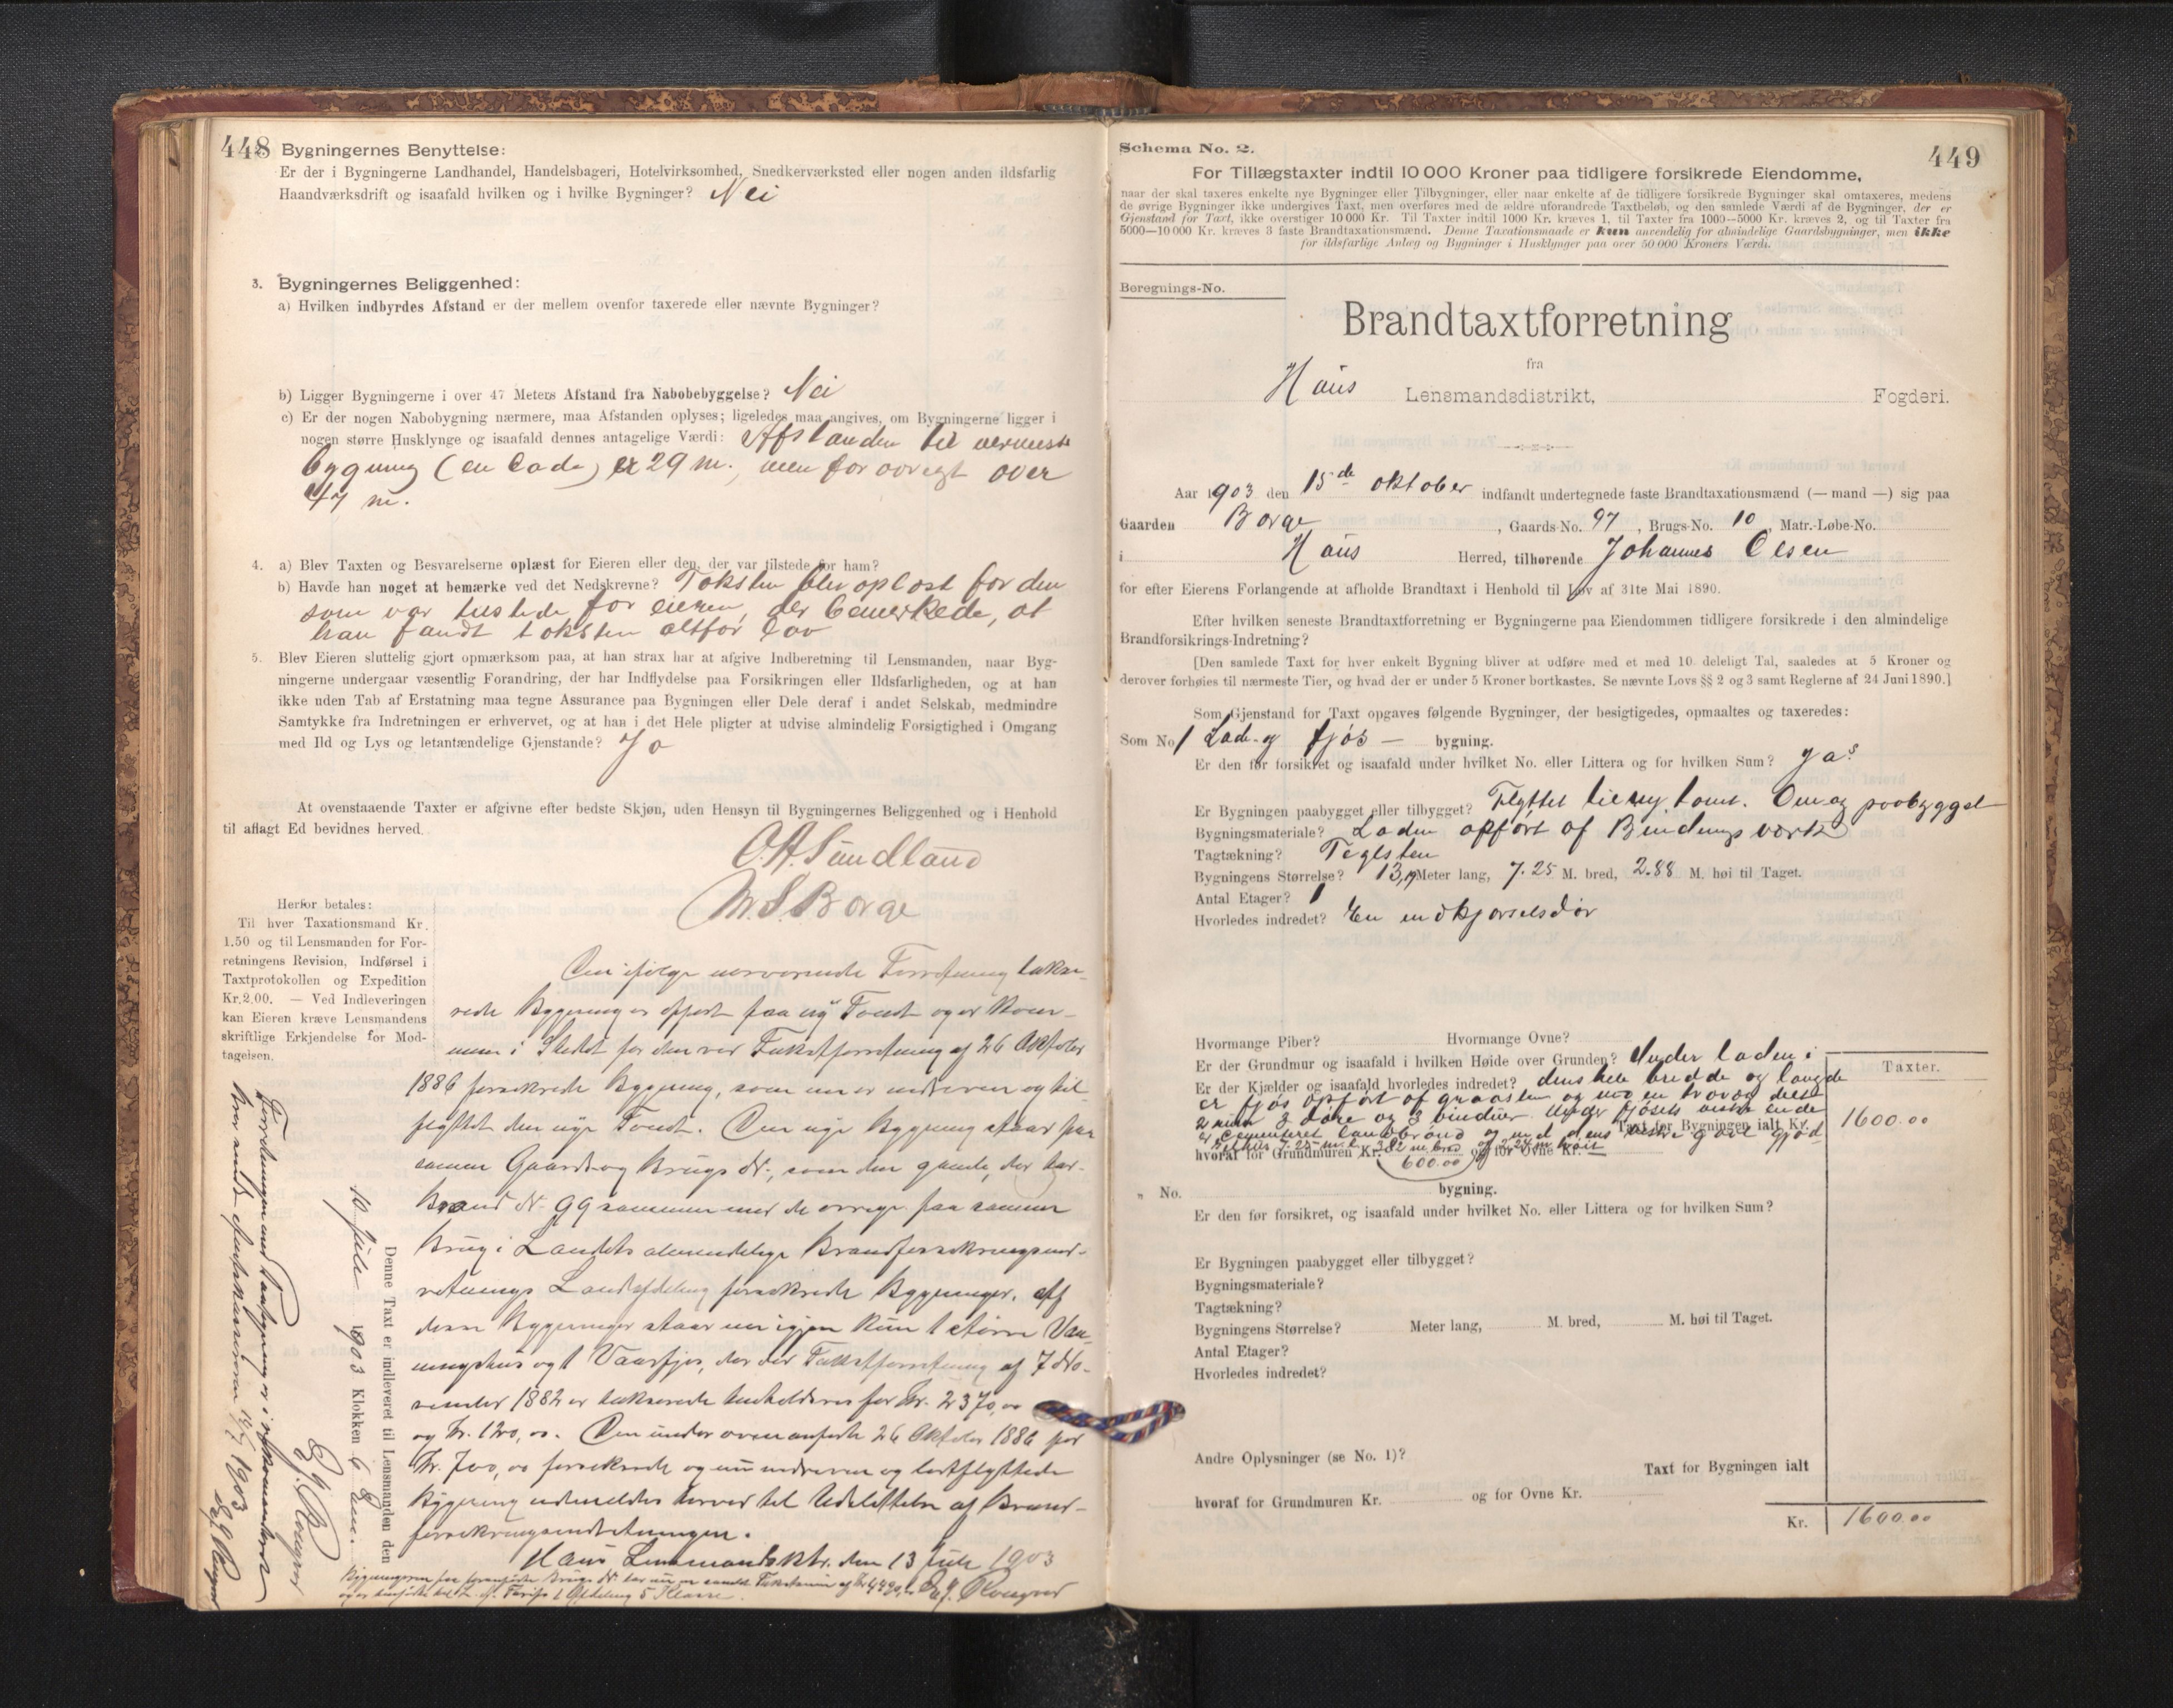 448
Bygningernes Benyttelse:
Er der i Bygningerne Landhandel, Handelsbageri, Hotelvirksomhed, Snedkerværksted eller nogen anden ildsfarlig
Haandværksdrift og isaafald hvilken og i hvilke Bygninger? Nei
3. Bygningernes Beliggenhed:
a) Hvilken indbyrdes Afstand er der mellem ovenfor taxerede eller nævnte Bygninger?
b) Ligger Bygningerne i over 47 Meters Afstand fra Nabobebyggelse? Nei
c) Er der nogen Nabobygning nærmere, maa Afstanden oplyses; ligeledes maa angives, om Bygningerne ligger i
nogen større Husklynge og isaafald dennes antagelige Værdi: Afstanden til nermeste
bygning (en Lade) er 29 m., men for øvrigt over
47 m.
4. a) Blev Taxten og Besvarelserne oplæst for Eieren eller den, der var tilstede for ham?
b) Havde han noget at bemærke ved det Nedskrevne? Taksten blev oplæst for den
som var tilstede for eieren, der bemerkede, at
han fandt taksten altfor lav
5. Blev Eieren sluttelig gjort opmærksom paa, at han strax har at afgive Indberetning til Lensmanden, naar Byg-
ningerne undergaar væsentlig Forandring, der har Indflydelse paa Forsikringen eller Ildsfarligheden, og at han
ikke uden Tab af Erstatning maa tegne Assurance paa Bygningen eller Dele deraf i andet Selskab, medmindre
Samtykke fra Indretningen er erhvervet, og at han i det Hele pligter at udvise almindelig Forsigtighed i Omgang
med Ild og Lys og letantændelige Gjenstande? Ja
At ovenstaaende Taxter er afgivne efter bedste Skjøn, uden Hensyn til Bygningernes Beliggenhed og i Henhold
til aflagt Ed bevidnes herved.
O. A. Sundland
M. S. Borge
Herfor betales:
Til hver Taxationsmand Kr.
1.50 og til Lensmanden for For-
retningens Revision, Indførsel i
Taxtprotokollen og Expedition
Kr. 2.00. — Ved Indleveringen
kan Eieren kræve Lensmandens
skriftlige Erkjendelse for Mod-
tagelsen.
Den ifølge nærværende Forretning takse-
rede Bygning er opført paa ny Tomt og er kom-
men i Stedet for den ved Takstforretning af 26 Oktober
1886 forsikrede Bygning, som nu er nedreven og til-
flyttet den nye Tomt. Den nye Bygning staar paa
samme Gaards og Brugs Nr., som den gamle, der har
Brand Nr. 99 sammen med de øvrige paa samme
Brug i Landets almindelige Brandforsikringsind-
retnings Landafdeling forsikrede Bygninger. Af
disse Bygninger staar nu igjen kun 1 større Vaa-
ningshus og 1 Vaarfjøs, der ved Takstforretning af 7 No-
vember 1882 er takserede henholdsvis for Kr. 2370,00
og Kr. 120,00. Den under ovenanførte 26 Oktober 1886 for
Kr. 700,00 forsikrede og nu nedrevne og bortflyttede
Bygning udmeldes herved til Udslettelse af Brand-
forsikringsindretningen.
Haus Lensmandsktr. den 13 Juli 1903
E. J. Rongved
Bygningerne paa foranførte Brugs Nr. har nu en samlet Takstsum af Kr. 4490,00
og er henført til L. A. Tarifs 1 Afdeling 5 Klasse.
Denne Taxt er indleveret til Lensmanden den
10 Juli 1903 Klokken 6 Em.
E. J. Rongved
14/7 1903
E. J. Rongved
Schema No. 2.
449
For Tillægstaxter indtil 10 000 Kroner paa tidligere forsikrede Eiendomme,
naar der skal taxeres enkelte nye Bygninger eller Tilbygninger, eller naar enkelte af de tidligere forsikrede Bygninger skal omtaxeres, medens
de øvrige Bygninger ikke undergives Taxt, men overføres med de ældre uforandrede Taxtbeløb, og den samlede Værdi af de Bygninger, der er
Gjenstand for Taxt, ikke overstiger 10 000 Kr. Til Taxter indtil 1000 Kr. kræves 1, til Taxter fra 1000—5000 Kr. kræves 2, og til Taxter fra
5000—10 000 Kr. kræves 3 faste Brandtaxationsmænd. Denne Taxationsmaade er kun anvendelig for almindelige Gaardsbygninger, men ikke
for ildsfarlige Anlæg og Bygninger i Husklynger paa over 50 000 Kroners Værdi.
Beregnings-No.
Brandtaxtforretning
fra
Haus Lensmandsdistrikt, Fogderi.
Aar 1903 den 15de oktober indfandt undertegnede faste Brandtaxationsmænd (— mand —) sig paa
Gaarden Borge, Gaards-No. 97, Brugs-No. 10, Matr.-Løbe-No.
i Haus Herred, tilhørende Johannes Olsen
for efter Eierens Forlangende at afholde Brandtaxt i Henhold til Lov af 31te Mai 1890.
Efter hvilken seneste Brandtaxtforretning er Bygningerne paa Eiendommen tidligere forsikrede i den almindelige
Brandforsikrings-Indretning?
[Den samlede Taxt for hver enkelt Bygning bliver at udføre med et med 10 deleligt Tal, saaledes at 5 Kroner og
derover forhøies til nærmeste Tier, og hvad der er under 5 Kroner bortkastes. Se nævnte Lovs §§ 2 og 3 samt Reglerne af 24 Juni 1890.]
Som Gjenstand for Taxt opgaves følgende Bygninger, der besigtigedes, opmaaltes og taxeredes:
Som No 1 Lade- og fjøs — bygning.
Er den før forsikret og isaafald under hvilket No. eller Littera og for hvilken Sum? Ja
Er Bygningen paabygget eller tilbygget? Flyttet til ny tomt. Om og paabygget
Bygningsmateriale? Laden opført af Bindingsværk
Tagtækning? Teglsten
Bygningens Størrelse? 13,19 Meter lang, 7.25 M. bred, 2.88 M. høi til Taget.
Antal Etager? 1
Hvorledes indredet? En indkjørselsdør
Hvormange Piber? Hvormange Ovne?
Er der Grundmur og isaafald i hvilken Høide over Grunden? Under laden i
Er der Kjælder og isaafald hvorledes indredet? dens hele bredde og længde
er fjøs opført af graasten
2 rum 3 døre og 3 vinduer. Under fjøsets ende
er cementeret
Taxt for Bygningen ialt Kr.
hvoraf for Grundmuren Kr. 600.00 og for Ovne Kr.
Taxter.
1600.00
„ No. bygning.
Er den før forsikret, og isaafald under hvilket No. eller Littera og for hvilken Sum?
Er Bygningen paabygget eller tilbygget?
Bygningsmateriale?
Tagtækning?
Bygningens Størrelse? Meter lang, M. bred, M. høi til Taget.
Antal Etager?
Hvorledes indredet?
Andre Oplysninger (se No. 1)?
Taxt for Bygningen ialt
hvoraf for Grundmuren Kr. og for Ovne Kr.
Kr. 1600.00